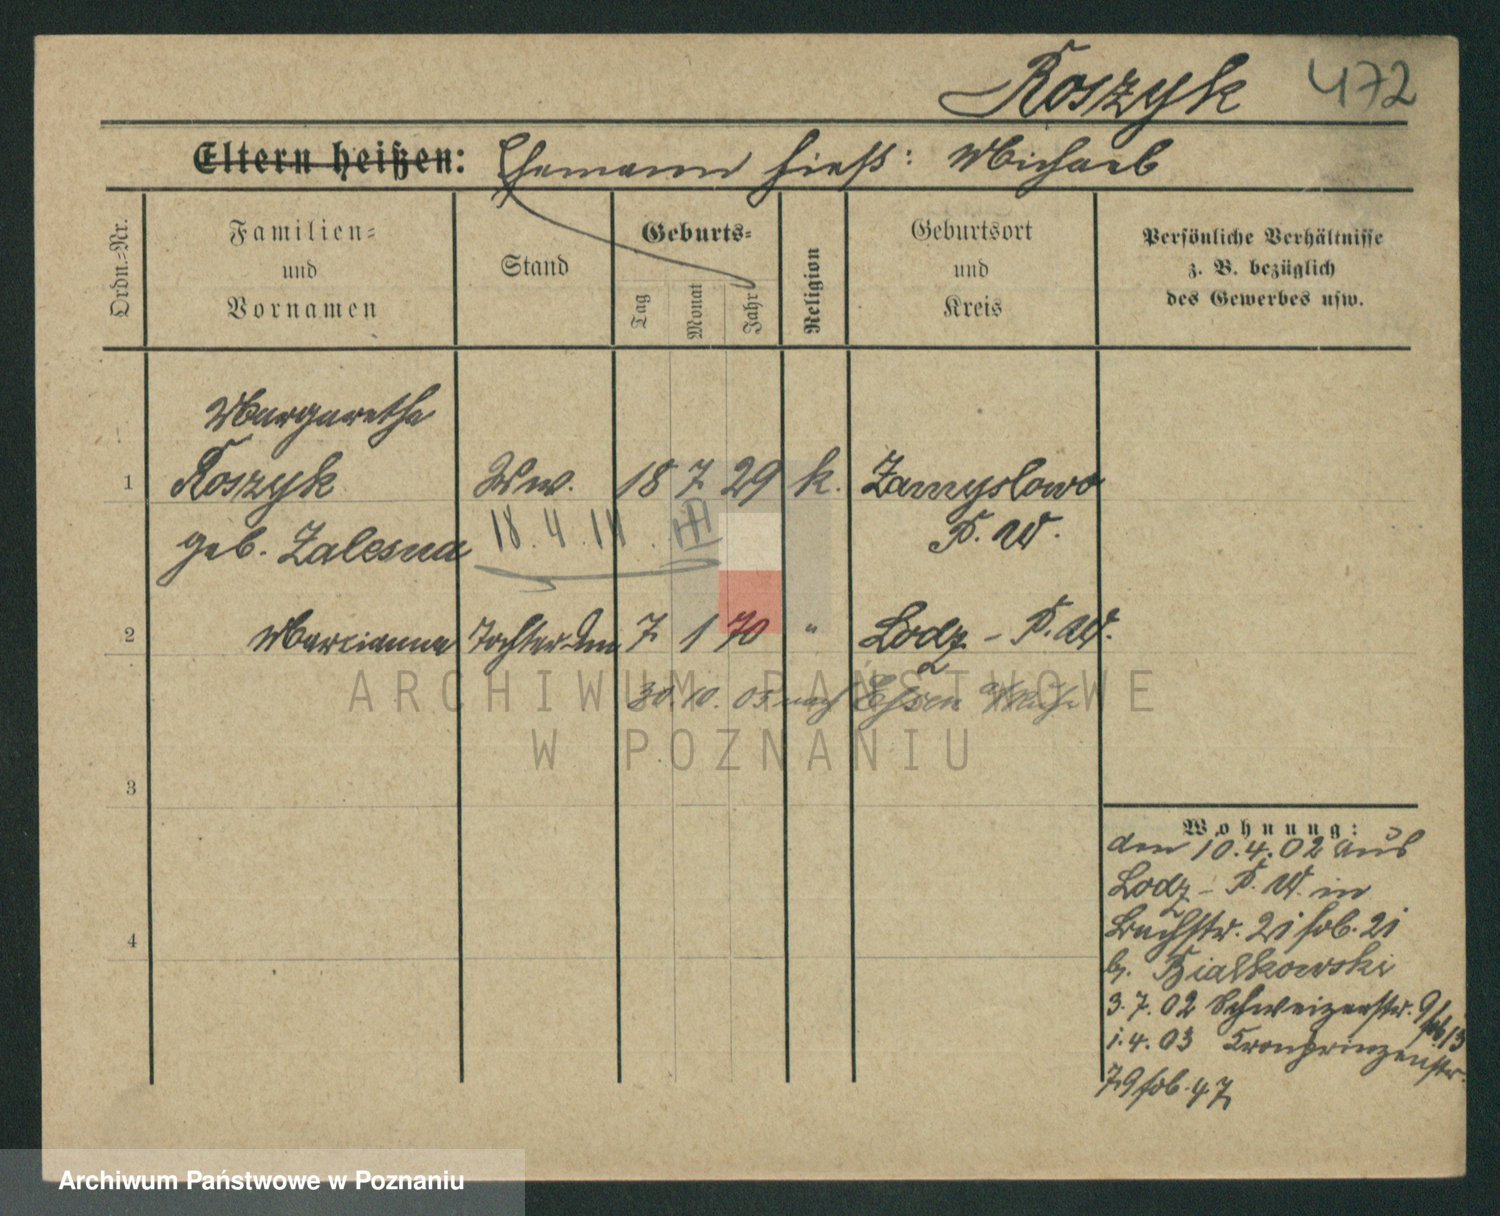 Koszyk 472
Eltern heißen: Ehemann hieß: Michael
Ordn.-Nr.
Familien-
und
Vornamen
Stand
Geburts-
Tag
Monat
Jahr
Religion
Geburtsort
und
Kreis
Persönliche Verhältnisse
z. B. bezüglich
des Gewerbes usw.
Margarethe
1 Koszyk Ww. 18 7 29 k. Zamyslowo
geb. Zalesna 18.4.14. P. W.
2 Marcianna Tochter 7 1 70 " Lodz - P. W.
30.10.05 nach Essen
3
4
Wohnung:
den 10.4.02 aus
Lodz - P. W. in
Bachstr. 21 sob. 21
b. Bialkowski
3.7.02 Schweizerstr. 9 sob 13
1.4.03 Kronprinzenstr.
79 sob. 47
ARCHIWUM PAŃSTWOWE
W POZNANIU
Archiwum Państwowe w Poznaniu